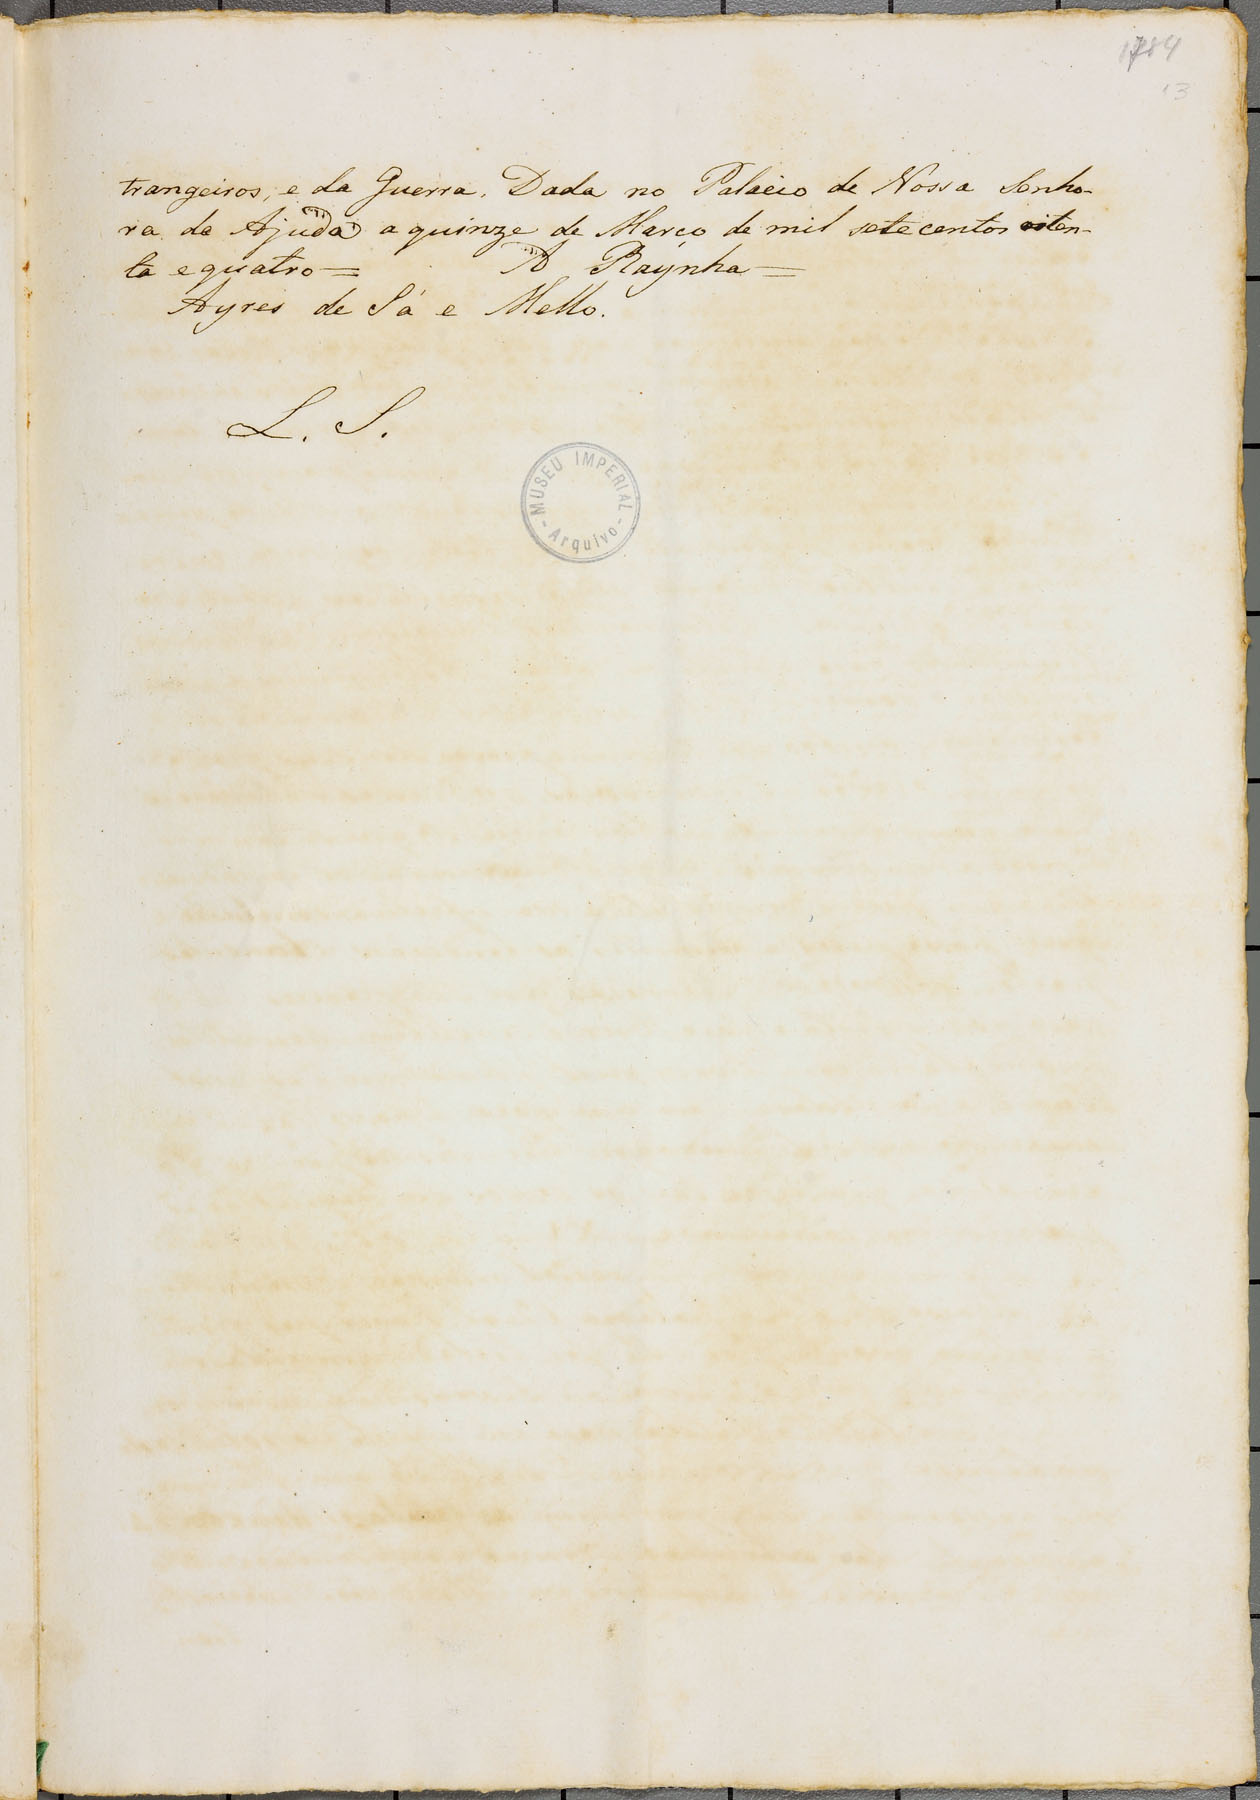 1784
13
trangeiros, e da Guerra. Dada no Palacio de Nossa Senho-
ra da Ajuda a quinze de Março de mil sete centos oiten-
ta e quatro = A Raynha =
Ayres de Sá e Mello.
L. S.
- MUSEU IMPERIAL -
Arquivo